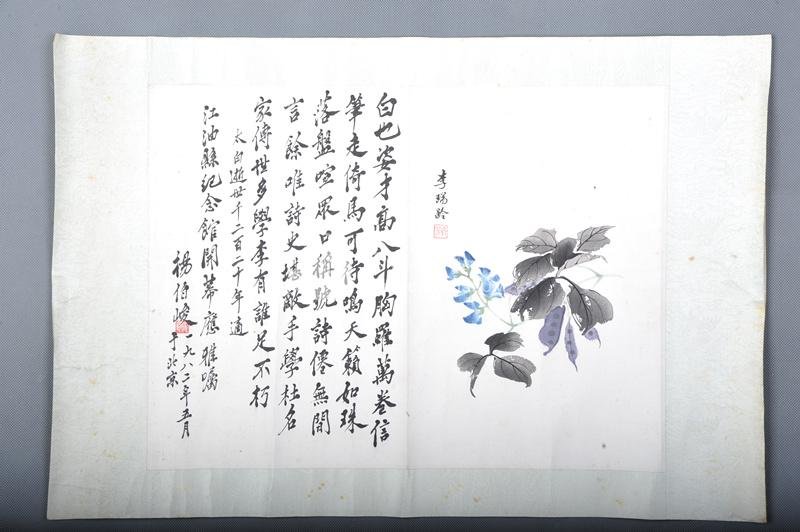 李瑞齡
白也姿才高八斗胸羅萬卷信
筆走倚馬可待鳴天籟如珠
落盤喧眾口稱號詩僊無閒
言餘唯詩史堪敵手學杜名
家傳世多學李有誰足不朽
太白逝世千二百二十年適
江油縣紀念館開幕應雅囑
楊伯峻一九八二年五月
于北京